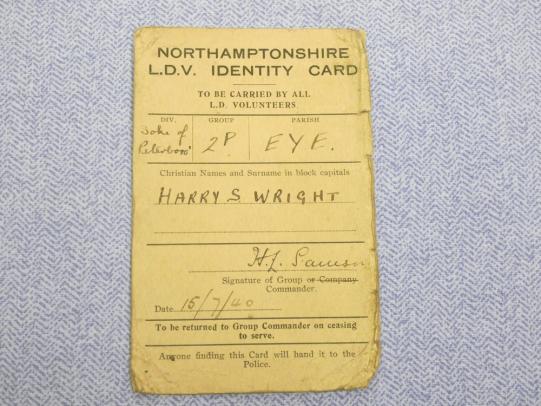 NORTHAMPTONSHIRE
L.D.V. IDENTITY CARD
TO BE CARRIED BY ALL
L.D. VOLUNTEERS.
DIV. GROUP PARISH
Soke of
Peterboro' 2P EYE.
Christian Names and Surname in block capitals
HARRY S. WRIGHT
H.L.
Signature of Group or Company
Commander.
Date 15/7/40
To be returned to Group Commander on ceasing
to serve.
Anyone finding this Card will hand it to the
Police.